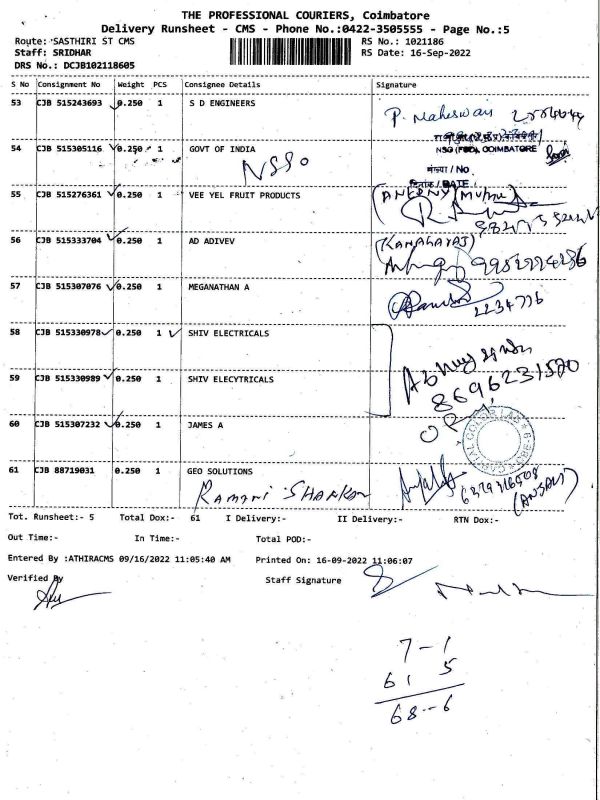 THE PROFESSIONAL COURIERS, Coimbatore
Delivery Runsheet - CMS - Phone No.:0422-3505555 - Page No.:5
Route: SASTHIRI ST CMS RS No.: 1021186
Staff: SRIDHAR RS Date: 16-Sep-2022
DRS No.: DCJB102118605
S No Consignment No Weight PCS Consignee Details Signature
53 CJB 515243693 0.250 1 S D ENGINEERS P. Maheswari
54 CJB 515305116 0.250 1 GOVT OF INDIA
NSSO
COIMBATORE
संख्या / No
दिनांक / DATE
55 CJB 515276361 0.250 1 VEE YEL FRUIT PRODUCTS
56 CJB 515333704 0.250 1 AD ADIVEV (KANAGARAJ)
57 CJB 515307076 0.250 1 MEGANATHAN A
2234776
58 CJB 515330978 0.250 1 SHIV ELECTRICALS
59 CJB 515330989 0.250 1 SHIV ELECYTRICALS
8696231520
60 CJB 515307232 0.250 1 JAMES A
61 CJB 88719031 0.250 1 GEO SOLUTIONS
RAMANI SHANKAR (ANSARI)
Tot. Runsheet:- 5 Total Dox:- 61 I Delivery:- II Delivery:- RTN Dox:-
Out Time:- In Time:- Total POD:-
Entered By :ATHIRACMS 09/16/2022 11:05:40 AM Printed On: 16-09-2022 11:06:07
Verified By Staff Signature
7-1
61 5
68--6